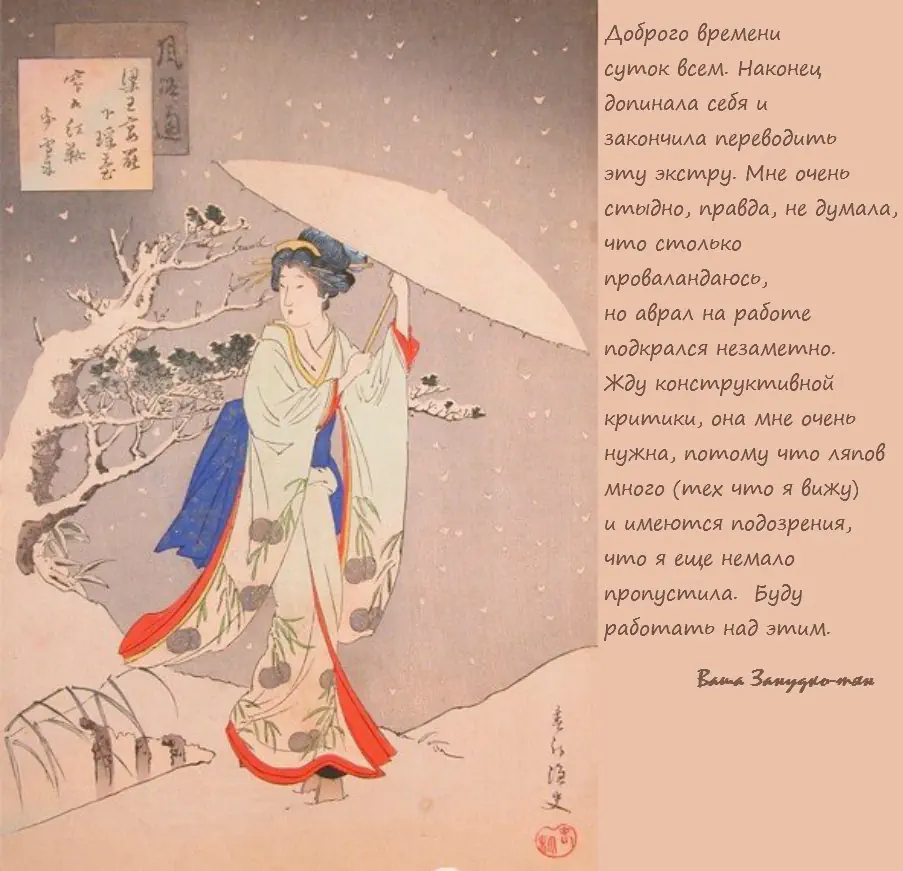 風俗通
Доброго времени
суток всем. Наконец
допинала себя и
закончила переводить
эту экстру. Мне очень
стыдно, правда, не думала,
что столько
проваландаюсь,
но аврал на работе
подкрался незаметно.
Жду конструктивной
критики, она мне очень
нужна, потому что ляпов
много (тех что я вижу)
и имеются подозрения,
что я еще немало
пропустила. Буду
работать над этим.
Ваша Занудко-тян